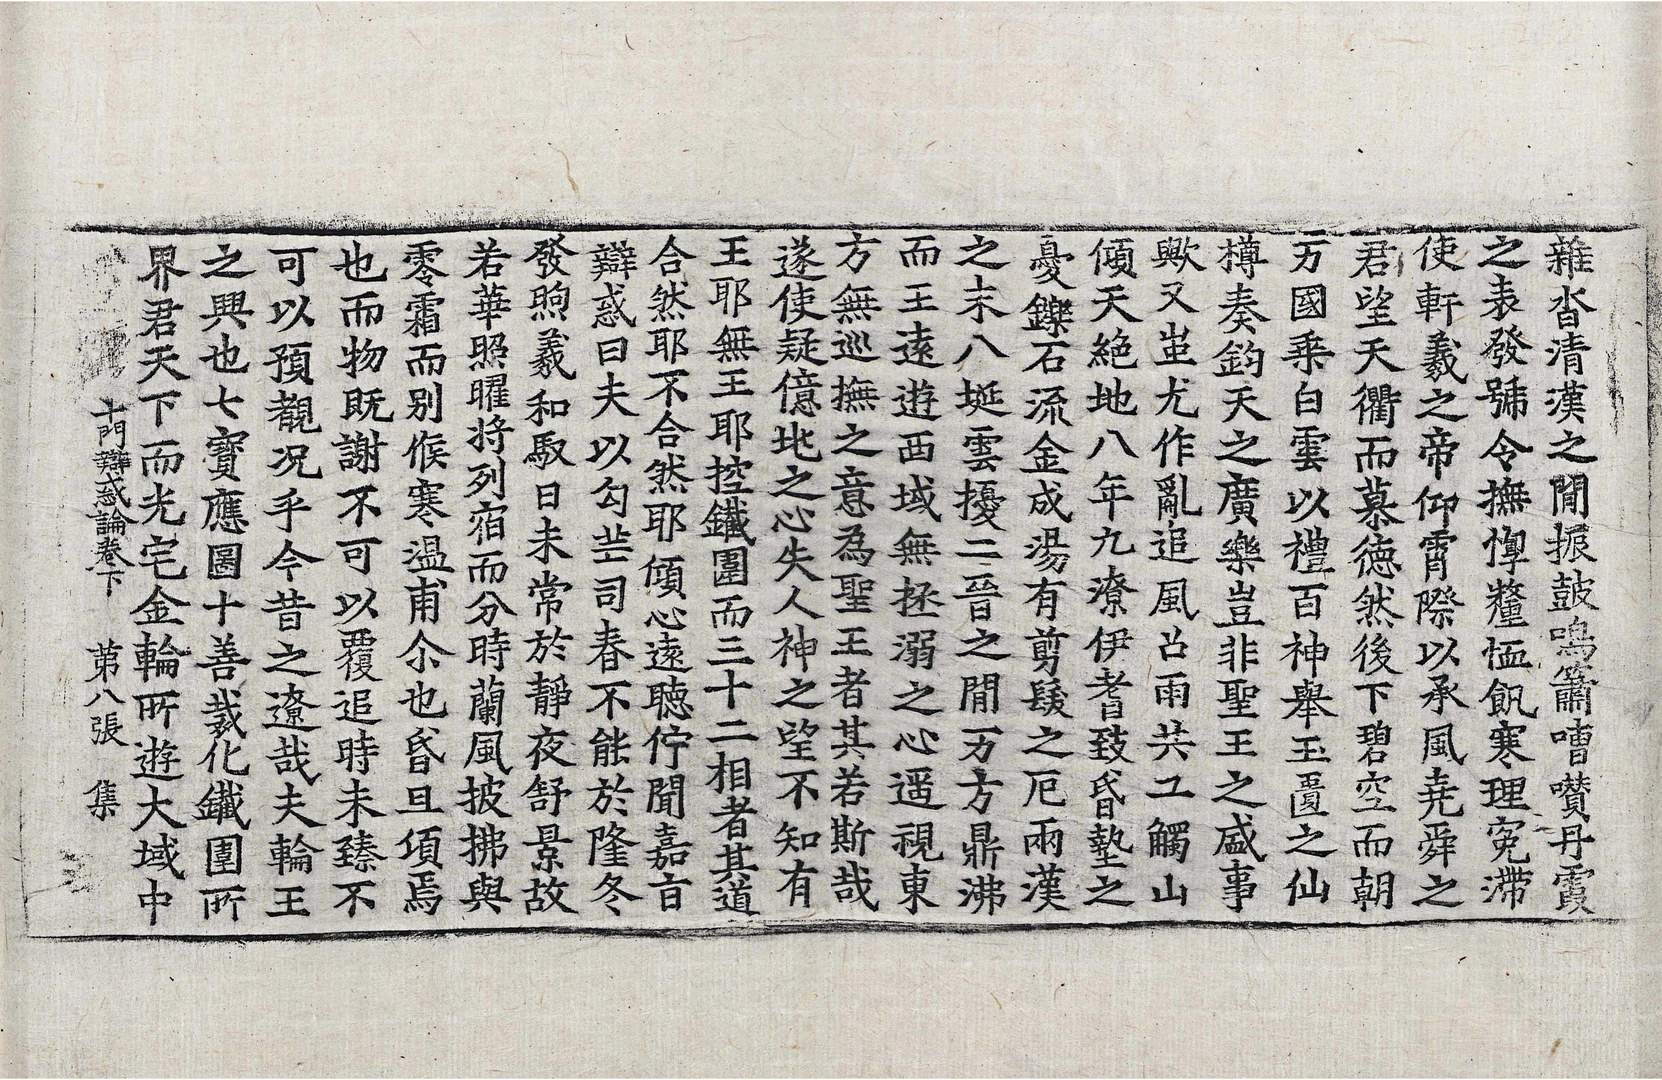 雜沓清漢之間振鼓鳴簫嘈囋丹霞
之表發號令撫惸釐恤飢寒理寃滯
使軒羲之帝仰霄際以承風堯舜之
君望天衢而慕德然後下碧空而朝
万國乘白雲以禮百神舉玉匱之仙
樽奏鈞天之廣樂豈非聖王之盛事
歟又蚩尤作亂追風召雨共工觸山
傾天絕地八年九潦伊耆致昏墊之
憂鑠石流金成湯有剪髮之厄兩漢
之末八埏雲擾二晉之間万方鼎沸
而王遠遊西域無拯溺之心遥視東
方無巡撫之意為聖王者其若斯哉
遂使疑億兆之心失人神之望不知有
王耶無王耶控鐵圍而三十二相者其道
合然耶不合然耶傾心遠聽佇聞嘉音
辯惑曰夫以勾芒司春不能於隆冬
發煦羲和馭日未常於靜夜舒景故
若華照曜將列宿而分時蘭風披拂與
零霜而別候寒溫甫尒也昏旦傾焉
也而物既謝不可以覆追時未臻不
可以預覩况乎今昔之遼哉夫輪王
之興也七寶應圖十善裁化鐵圍所
界君天下而光宅金輪所遊大域中
十門辯惑論卷下 第八張 集